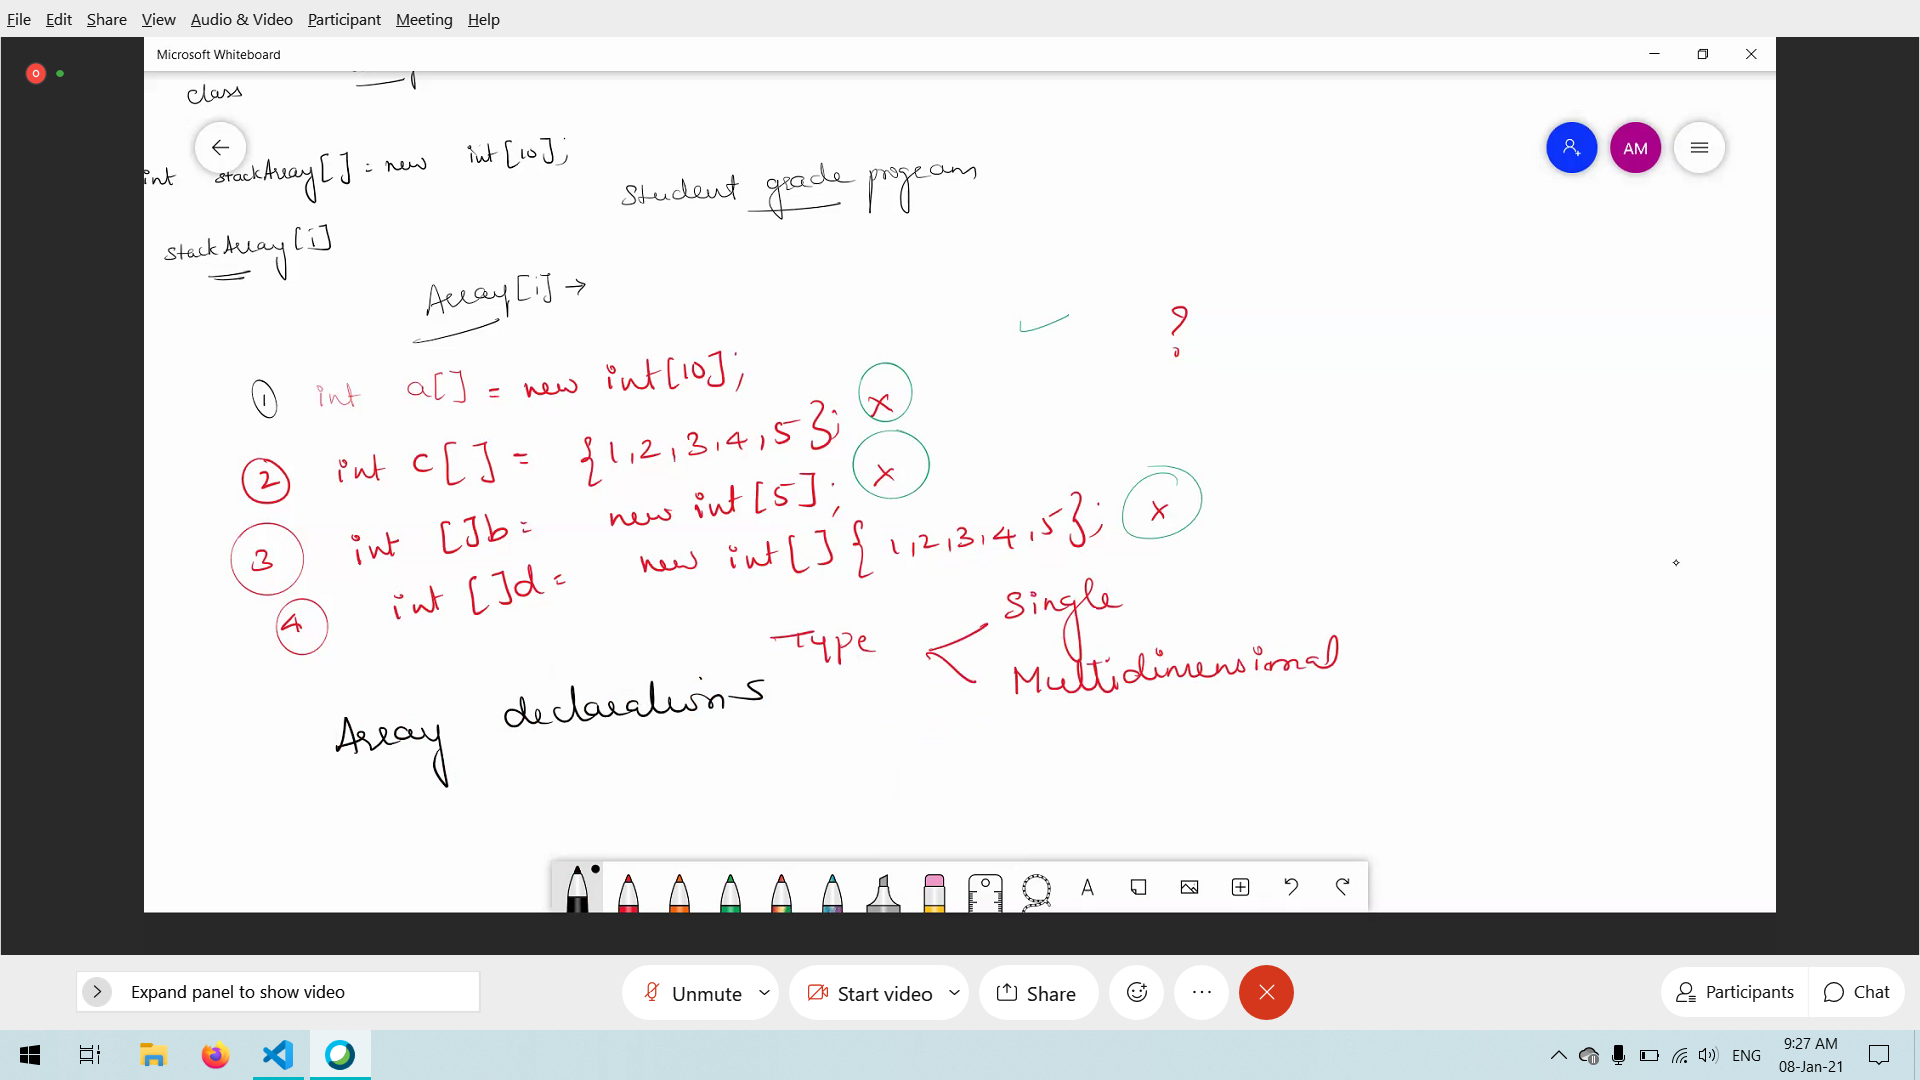 File Edit Share View Audio & Video Participant Meeting Help
Microsoft Whiteboard
class
int stackArray[] = new int[10];
Student grade program
AM
stackArray[i]
Array[i] →
?
① int a[] = new int[10];
x
② int c[] = {1,2,3,4,5};
x
③ int []b = new int[5];
④ int []d = new int[]{1,2,3,4,5};
x
Type < Single
Multidimensional
Array declarations
A
Expand panel to show video
Unmute Start video Share
Participants Chat
ENG
9:27 AM
08-Jan-21